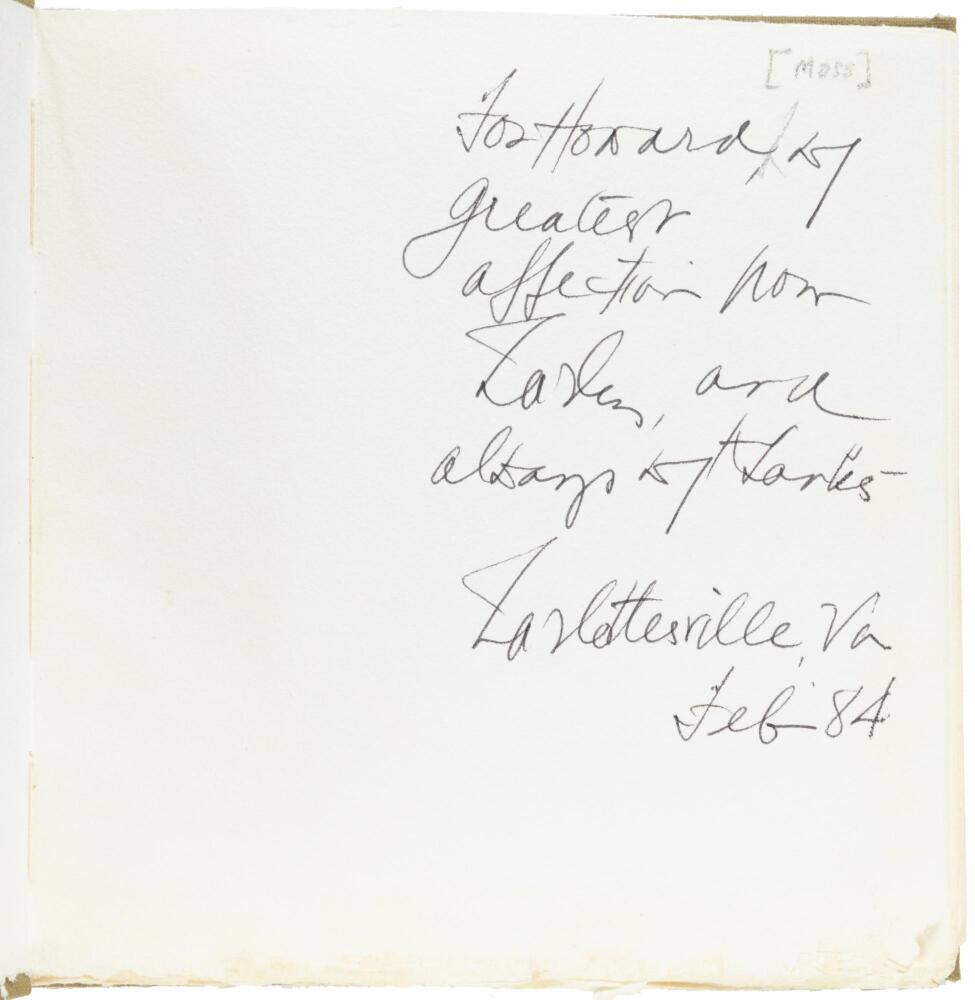 [Moss]
For Howard, w/
greatest
affection from
Charles, and
always w/ thanks
Charlottesville, Va
Feb 84